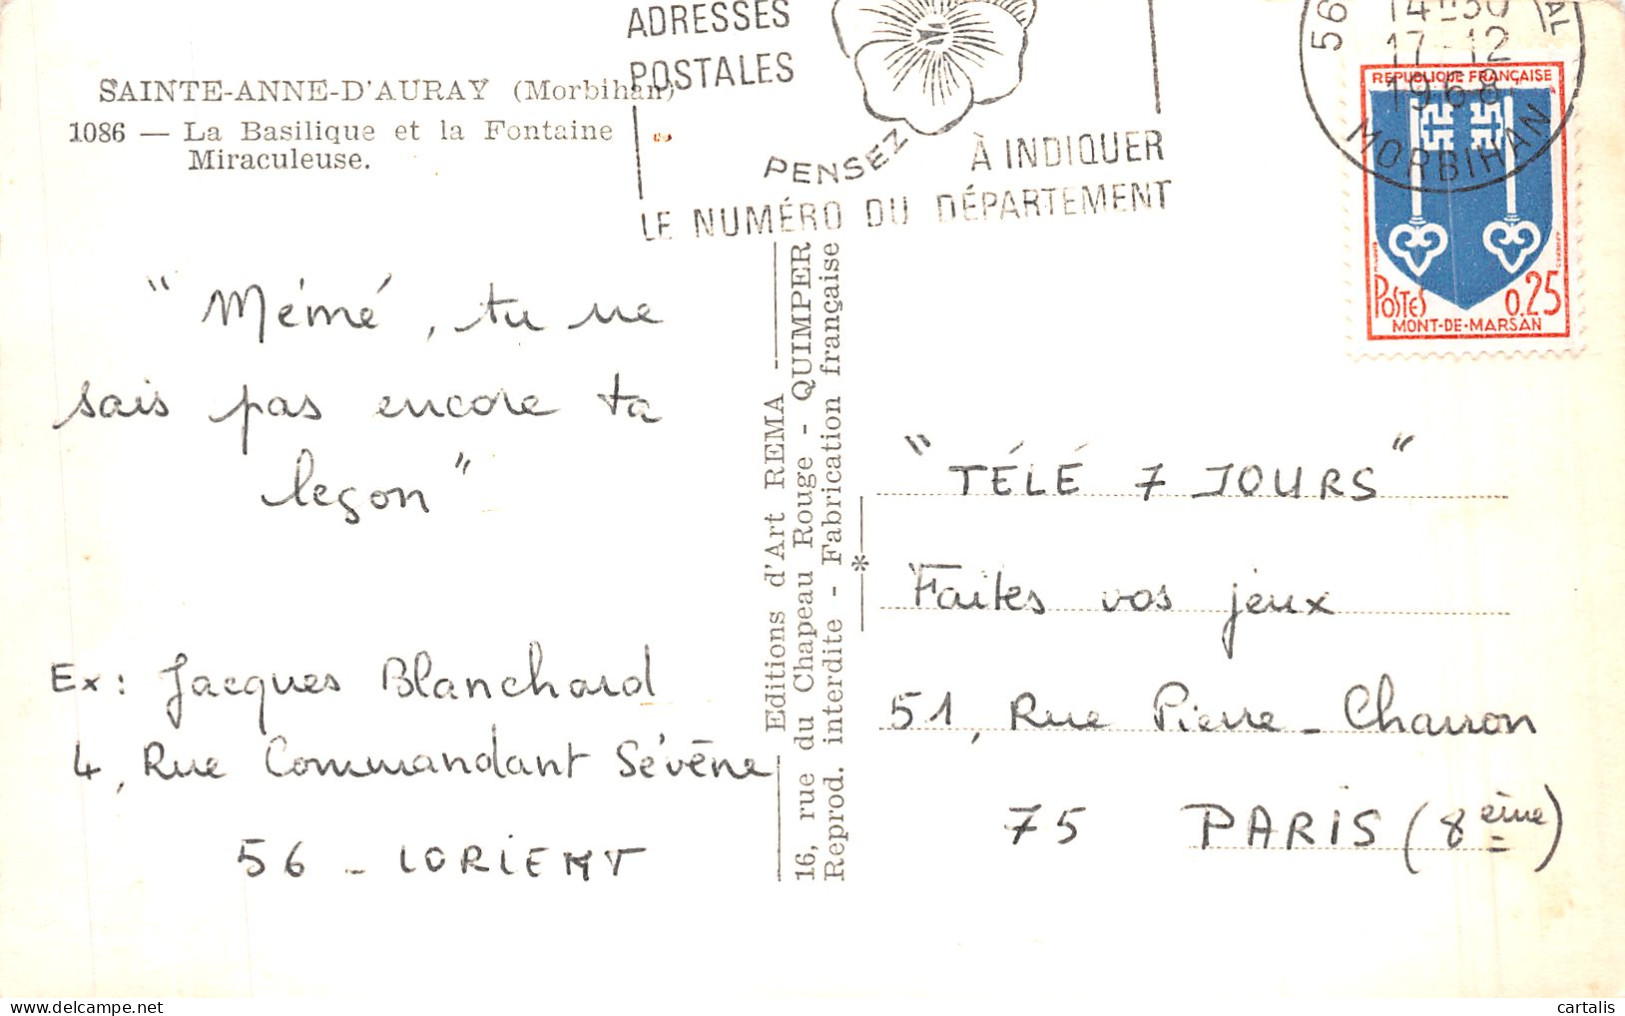 ADRESSES
POSTALES
PENSEZ
À INDIQUER
LE NUMÉRO DU DÉPARTEMENT
56
14H30
17-12
1968
MORBIHAN
RÉPUBLIQUE FRANÇAISE
POSTES 0.25
MONT-DE-MARSAN
SAINTE-ANNE-D'AURAY (Morbihan)
1086 — La Basilique et la Fontaine
Miraculeuse.
" Mémé, tu ne
sais pas encore ta
leçon "
Ex : Jacques Blanchard
4, Rue Commandant Sévène
56 - LORIENT
Editions d'Art REMA
16, rue du Chapeau Rouge - QUIMPER
Reprod. interdite - Fabrication française
" TÉLÉ 7 JOURS "
Faites vos jeux
51, Rue Pierre - Charron
75 PARIS (8ème)
cartalis